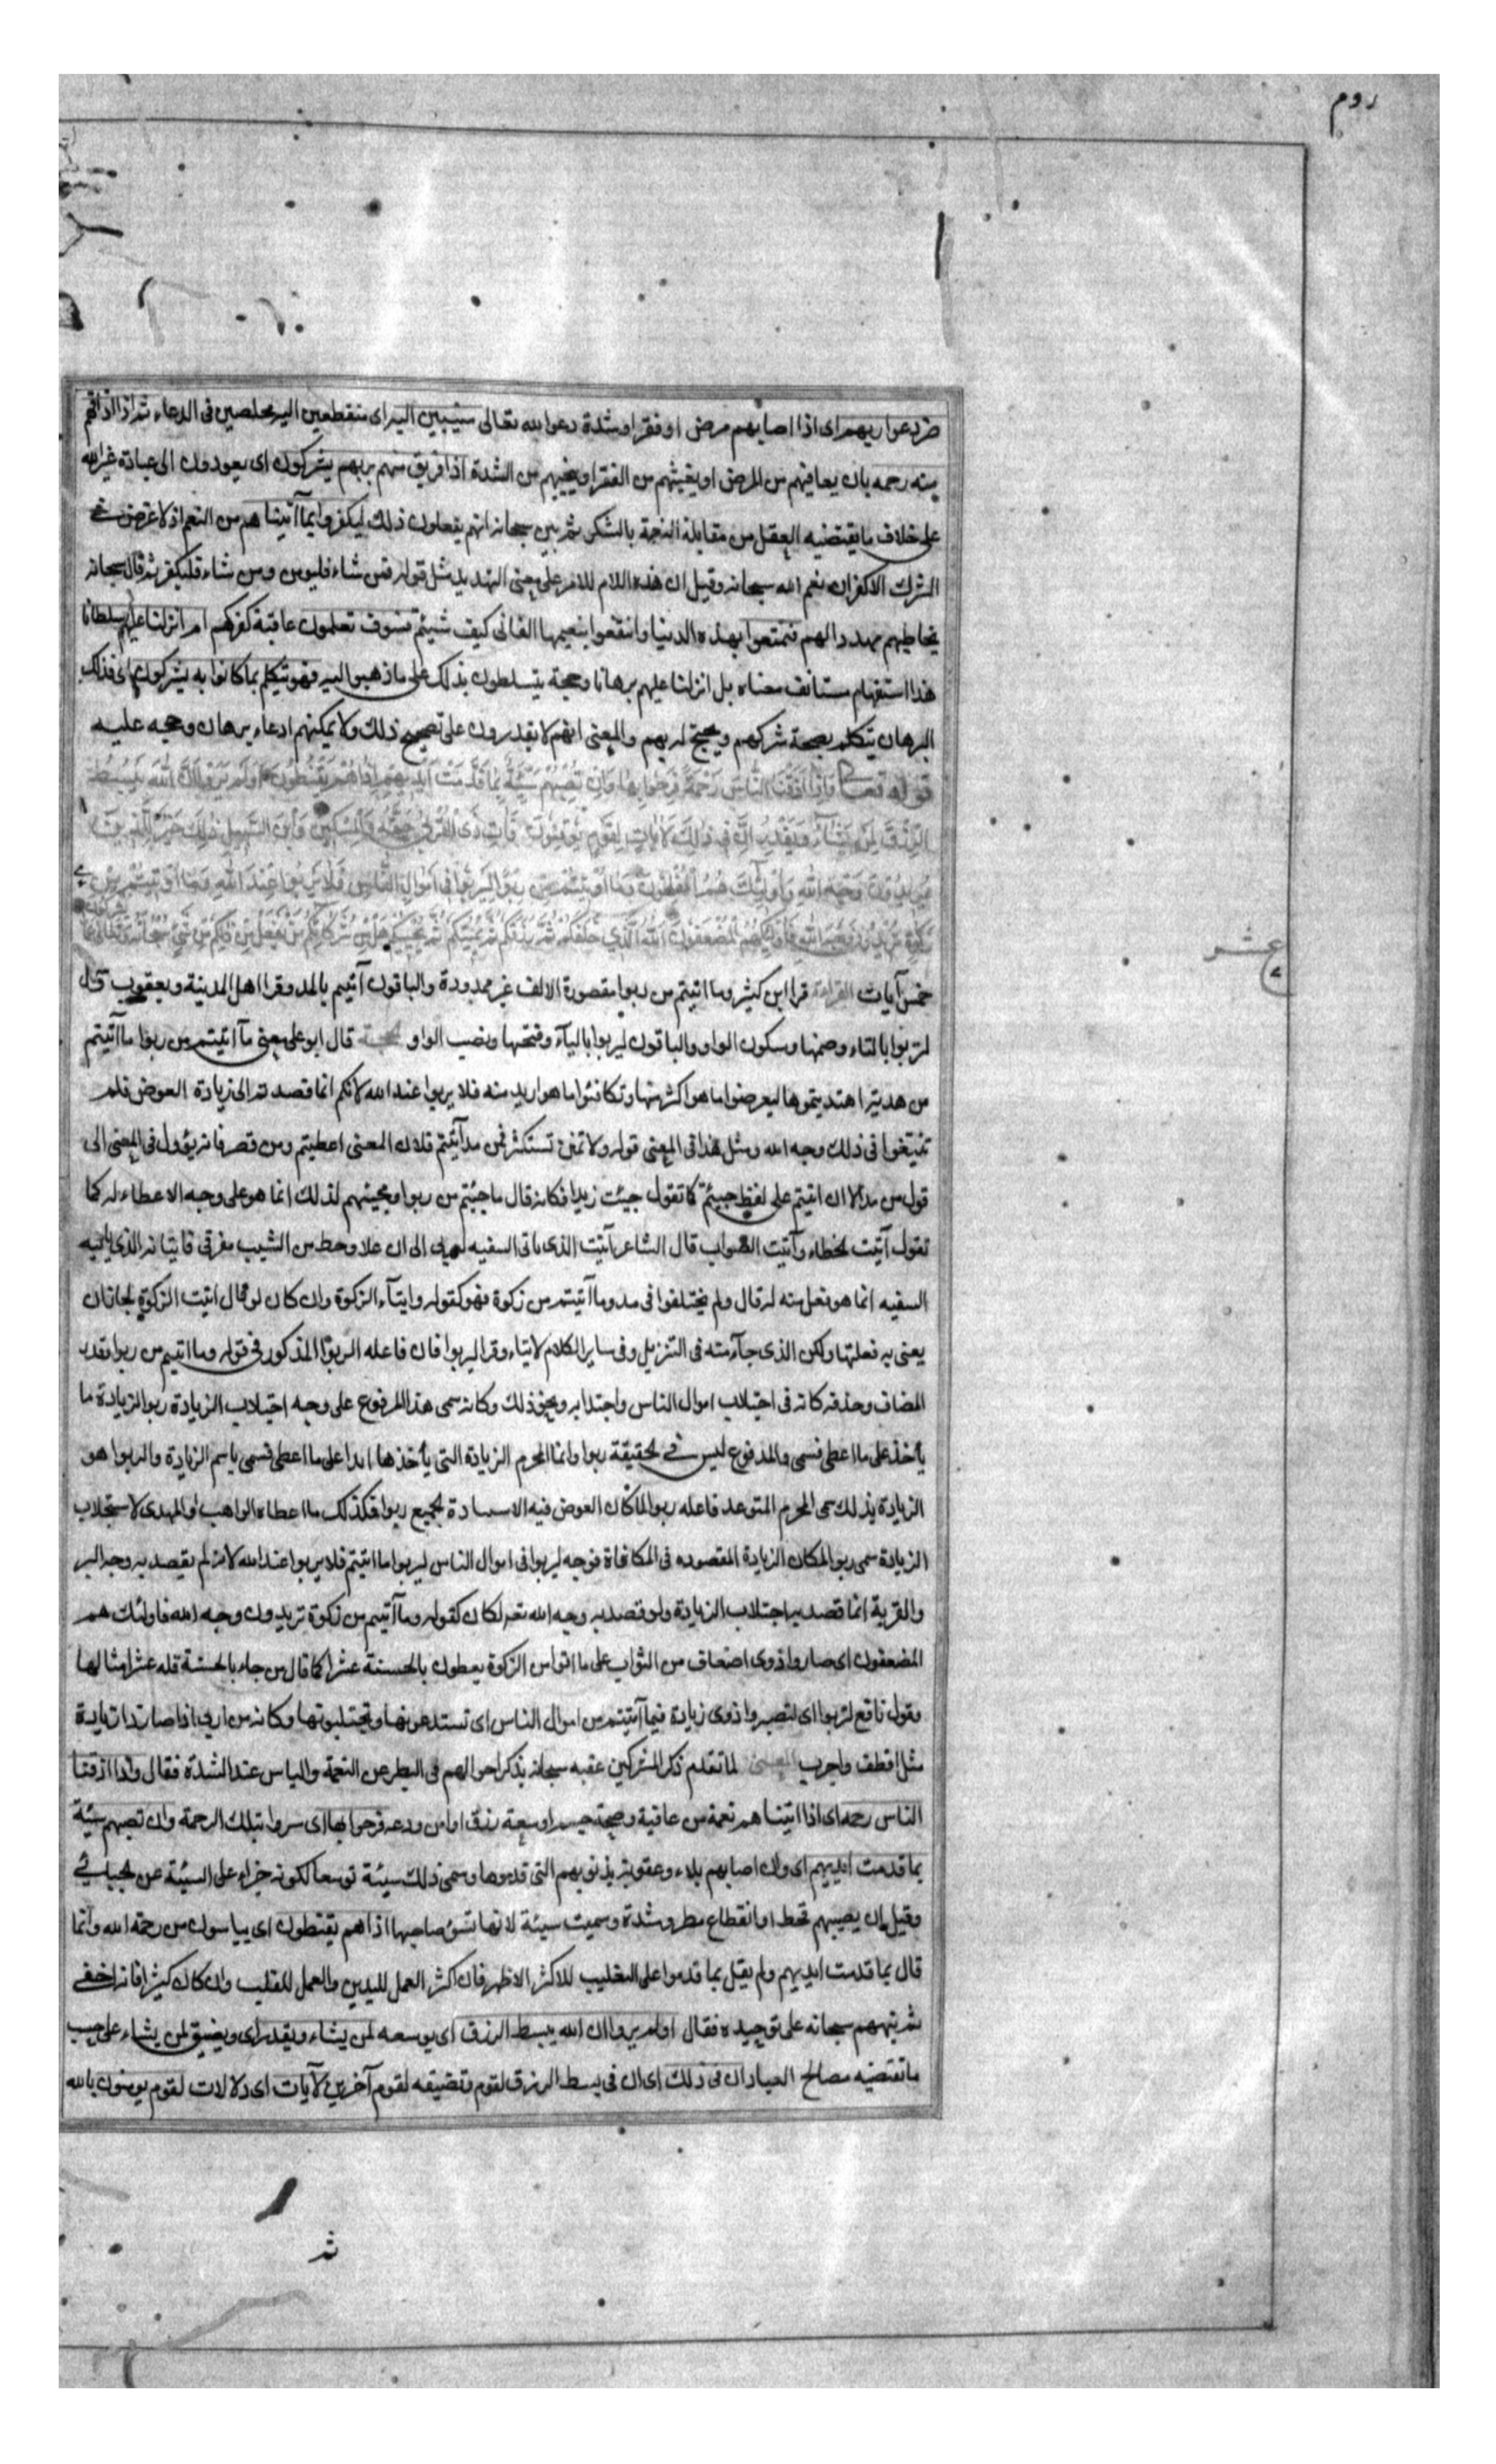 روم
ضر دعوا ربهم اى اذا اصابهم مرض او فقر او شدة دعوا الله تعالى منيبين اليه اى منقطعين اليه مخلصين فى الدعاء ثم اذا اذاقهم
منه رحمه بان يعافيهم من المرض او يغنيهم من الفقر او ينجيهم من الشدة اذا فريق منهم بربهم يشركون اى يعودون الى عبادة غير الله
على خلاف ما يقتضيه العقل من مقابلة النعمة بالشكر ثم بين سبحانه انهم يفعلون ذلك ليكفروا بما آتيناهم من النعم اذ لا غرض فى
الشرك الا كفران نعم الله سبحانه وقيل ان هذه اللام للامر على معنى التهديد مثل قوله فمن شاء فليومن ومن شاء فليكفر ثم قال سبحانه
يخاطبهم مهددا لهم فتمتعوا بهذه الدنيا وانتفعوا بنعيمها الفانى كيف شيئتم فسوف تعلمون عاقبة كفركم ام انزلنا عليهم سلطانا
هذا استفهام مستانف معناه بل انزلنا عليهم برهانا وحجة يتسلطون بذلك على ما ذهبوا اليه فهو يتكلم بما كانوا به يشركون اى فذلك
البرهان يتكلم بصحة شركهم ويحتج لهم به والمعنى انهم لا يقدرون على تصحيح ذلك ولا يمكنهم ادعاء برهان وحجه عليه
قوله تعالى وَاِذَا اَذَقْنَا النَّاسَ رَحْمَةً فَرِحُوا بِهَا وَاِنْ تُصِبْهُمْ سَيِّئَةٌ بِمَا قَدَّمَتْ اَيْدِيهِمْ اِذَا هُمْ يَقْنَطُونَ اَوَلَمْ يَرَوْا اَنَّ اللهَ يَبْسُطُ
الرِّزْقَ لِمَنْ يَشَآءُ وَيَقْدِرُ اِنَّ فِى ذَلِكَ لَاٰيَاتٍ لِقَوْمٍ يُؤْمِنُونَ فَآتِ ذَى الْقُرْبَى حَقَّهُ وَالْمِسْكِينَ وَابْنَ السَّبِيلِ ذَلِكَ خَيْرٌ لِلَّذِينَ
يُرِيدُونَ وَجْهَ اللهِ وَاُولَٓئِكَ هُمُ الْمُفْلِحُونَ وَمَا اٰتَيْتُمْ مِنْ رِبًوا لِيَرْبُوَا فِى اَمْوَالِ النَّاسِ فَلَا يَرْبُوا عِنْدَ اللهِ وَمَا اٰتَيْتُمْ مِنْ
زَكٰوةٍ تُرِيدُونَ وَجْهَ اللهِ فَاُولَئِكَ هُمُ الْمُضْعِفُونَ اَللهُ الَّذِى خَلَقَكُمْ ثُمَّ رَزَقَكُمْ ثُمَّ يُمِيتُكُمْ ثُمَّ يُحْيِيكُمْ هَلْ مِنْ شُرَكَائِكُمْ مَنْ يَفْعَلُ مِنْ ذَلِكُمْ مِنْ شَىْءٍ سُبْحَانَهُ وَتَعَالَى عَمَّا يشركون
عشر
خمس آيات القراءة قرا ابن كثير وما اتيتم من ربوا مقصورة الالف غير ممدودة والباقون آتيتم بالمد وقرا اهل المدينة ويعقوب
لتربوا بالتاء وضمها وسكون الواو والباقون ليربوا بالياء وفتحها ونصب الواو الحجة قال ابو على معنى ما اتيتم من ربوا ما آتيتم
من هدية اهديتموها ليعوضوا ما هو اكثر منها وتكافئوا ما هو ازيد منه فلا يربوا عند الله لانكم انما قصدتم الى زيادة العوض فلم
تبتغوا فى ذلك وجه الله ومثل هذا فى المعنى قوله ولا تمنن تستكثر فمن مد آتيتم فلان المعنى اعطيتم ومن قصر فانه يؤول فى المعنى الى
قول من مد الا ان اتيتم على لفظ جيئتم كما تقول جيئت زيدا فكانه قال ما جيئتم من ربوا ومجيئهم لذلك انما هو على وجه الاعطاء له كما
تقول آتيت الخطاء وآتيت الصواب قال الشاعر آتيت الذى ياتى السفيه الى ان علا وخط من الشيب مفرقى فاتيانه الذى ياتيه
السفيه انما هو فعل منه له قال ولم يختلفوا فى مد وما آتيتم من زكوة فهو كقوله وايتآء الزكوة وان كان لو قال اتيت الزكوة لجاز ان
يعنى به فعلتها ولكن الذى جآء منه فى التنزيل وفى ساير الكلام الايتاء وقر ليربوا فان فاعله الربوا المذكور فى قوله وما اتيتم من ربوا تقدير
المضاف وحذفه كانه فى اجتلاب اموال الناس واجتذابه ونحو ذلك وكانه سمى هذا المدفوع على وجه اجتلاب الزيادة ربوا لزيادة ما
يأخذ على ما اعطى فسمى والمدفوع ليس فى الحقيقة ربوا وانما المحرم الزيادة التى يأخذها ابدا على ما اعطى فسمى باسم الزيادة والربوا هو
الزيادة بذلك سمى المحرم المتوعد فاعله ربوا لما كان العوض فيه الجميع ربوا فكذلك ما اعطاه الواهب او المهدى لاستجلاب
الزيادة سمى ربوا لمكان الزيادة المقصوده فى المكافاة فوجه ليربوا فى اموال الناس ليربوا ما اتيتم فلا يربوا عند الله لانه لم يقصد به وجه البر
والقربة انما قصد به اجتلاب الزيادة ولو قصد به وجه الله تعالى لكان كقوله وما آتيتم من زكوة تريدون وجه الله فاولئك هم
المضعفون اى صاروا ذوى اضعاف من الثواب على ما اتوا من الزكوة يعطون بالحسنة عشرا كما قال من جاء بالحسنة فله عشر امثالها
وقول نافع لتربوا اى لتصيروا ذوى زيادة فيما آتيتم من اموال الناس اى تستدعونها وتجتلبونها وكانه من اربى اذا صار ذا زيادة
مثل اقطف واجرب المعنى لما تقدم ذكر المشركين عقبه سبحانه بذكر احوالهم فى البطر عن النعمة والياس عند الشدة فقال واذا اذقنا
الناس رحمه اى اذا اتيناهم نعمة من عافية وصحة جسم او سعة رزق او امن ودعه فرحوا بها اى سروا بتلك الرحمة وان تصبهم سيئة
بما قدمت ايديهم اى وان اصابهم بلاء وعقوبة بذنوبهم التى قدموها وسمى ذلك سيئة توسعا لكونه جزاء على السيئة عن الجبائى
وقيل ان يصيبهم قحط او انقطاع مطر وشدة وسميت سيئة لانها تسوء صاحبها اذا هم يقنطون اى يياسون من رحمة الله وانما
قال بما قدمت ايديهم ولم يقل بما قدموا على التغليب للاكثر الاظهر فان اكثر العمل لليدين والعمل للقلب وان كان كثيرا فانه اخفى
ثم نبههم سبحانه على توحيده فقال اولم يروا ان الله يبسط الرزق اى يوسعه لمن يشاء ويقدر اى ويضيق لمن يشاء على حسب
ما تقتضيه مصالح العباد ان فى ذلك اى ان فى بسط الرزق لقوم وتضيقه لقوم آخرين لآيات اى دلالات لقوم يومنون بالله
ثم